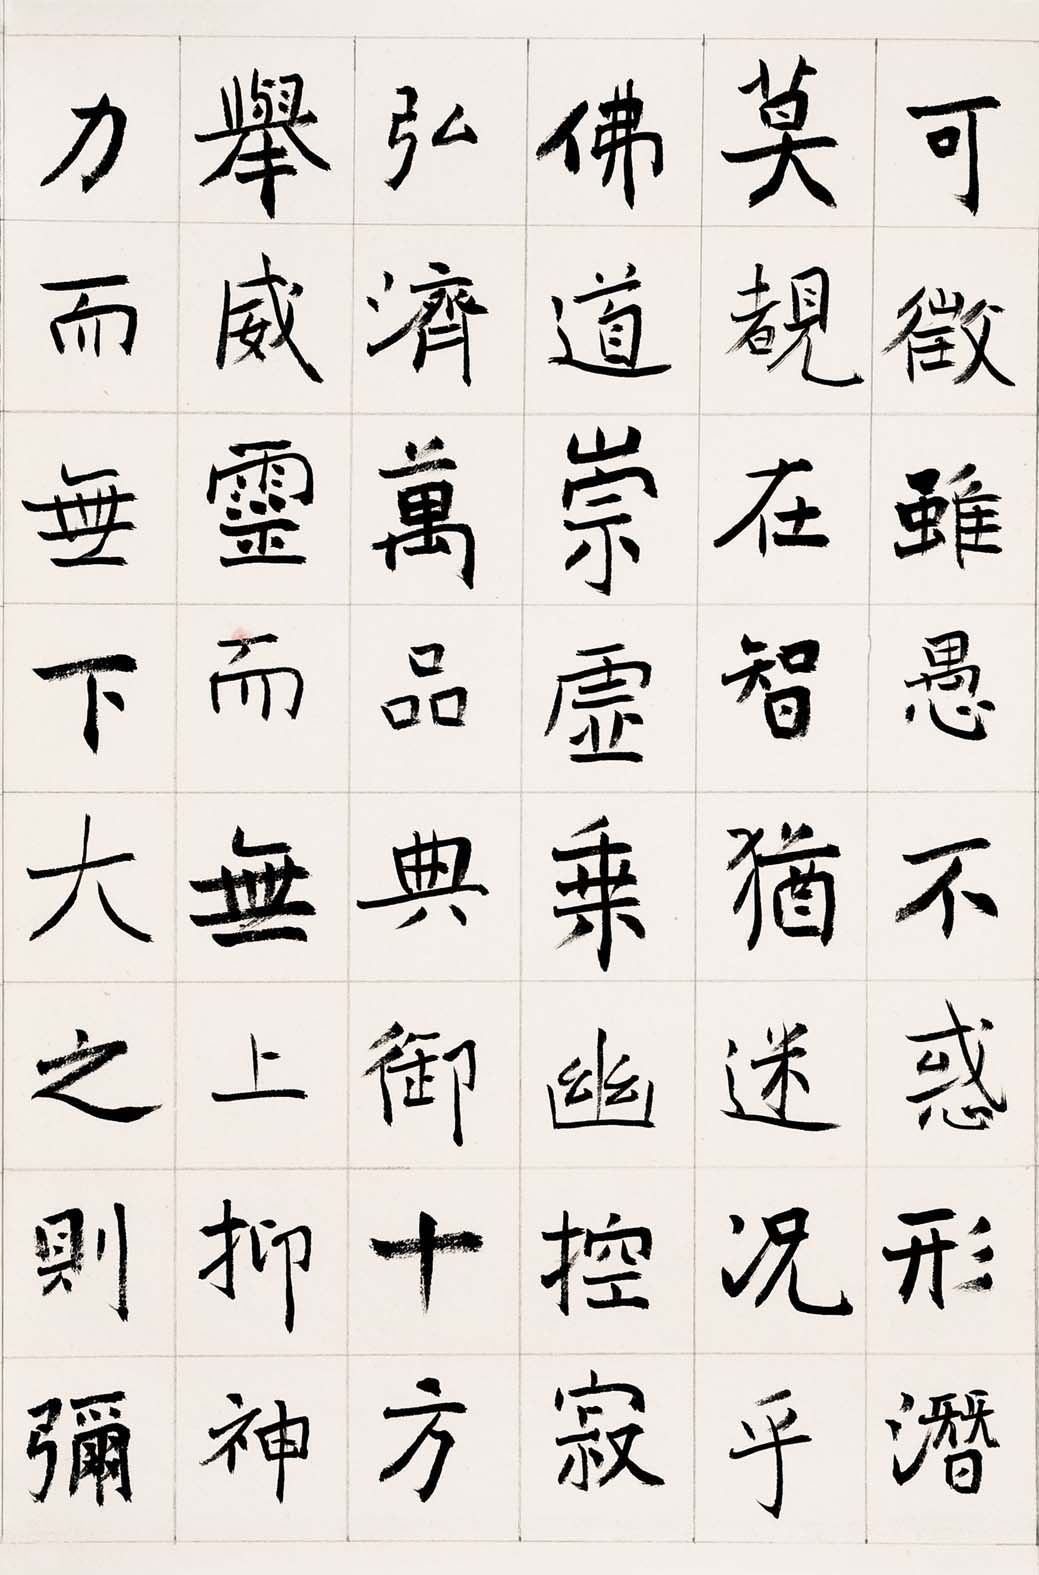 可徵雖愚不惑形潛
莫覩在智猶迷況乎
佛道崇虛乗幽控寂
弘濟萬品典御十方
舉威靈而無上抑神
力而無下大之則彌